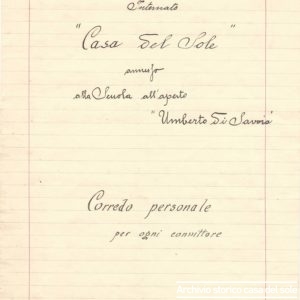 Internato
"Casa del Sole"
annesso
alla Scuola all'aperto
"Umberto Di Savoia"
Corredo personale
per ogni convittore
Archivio storico casa del sole